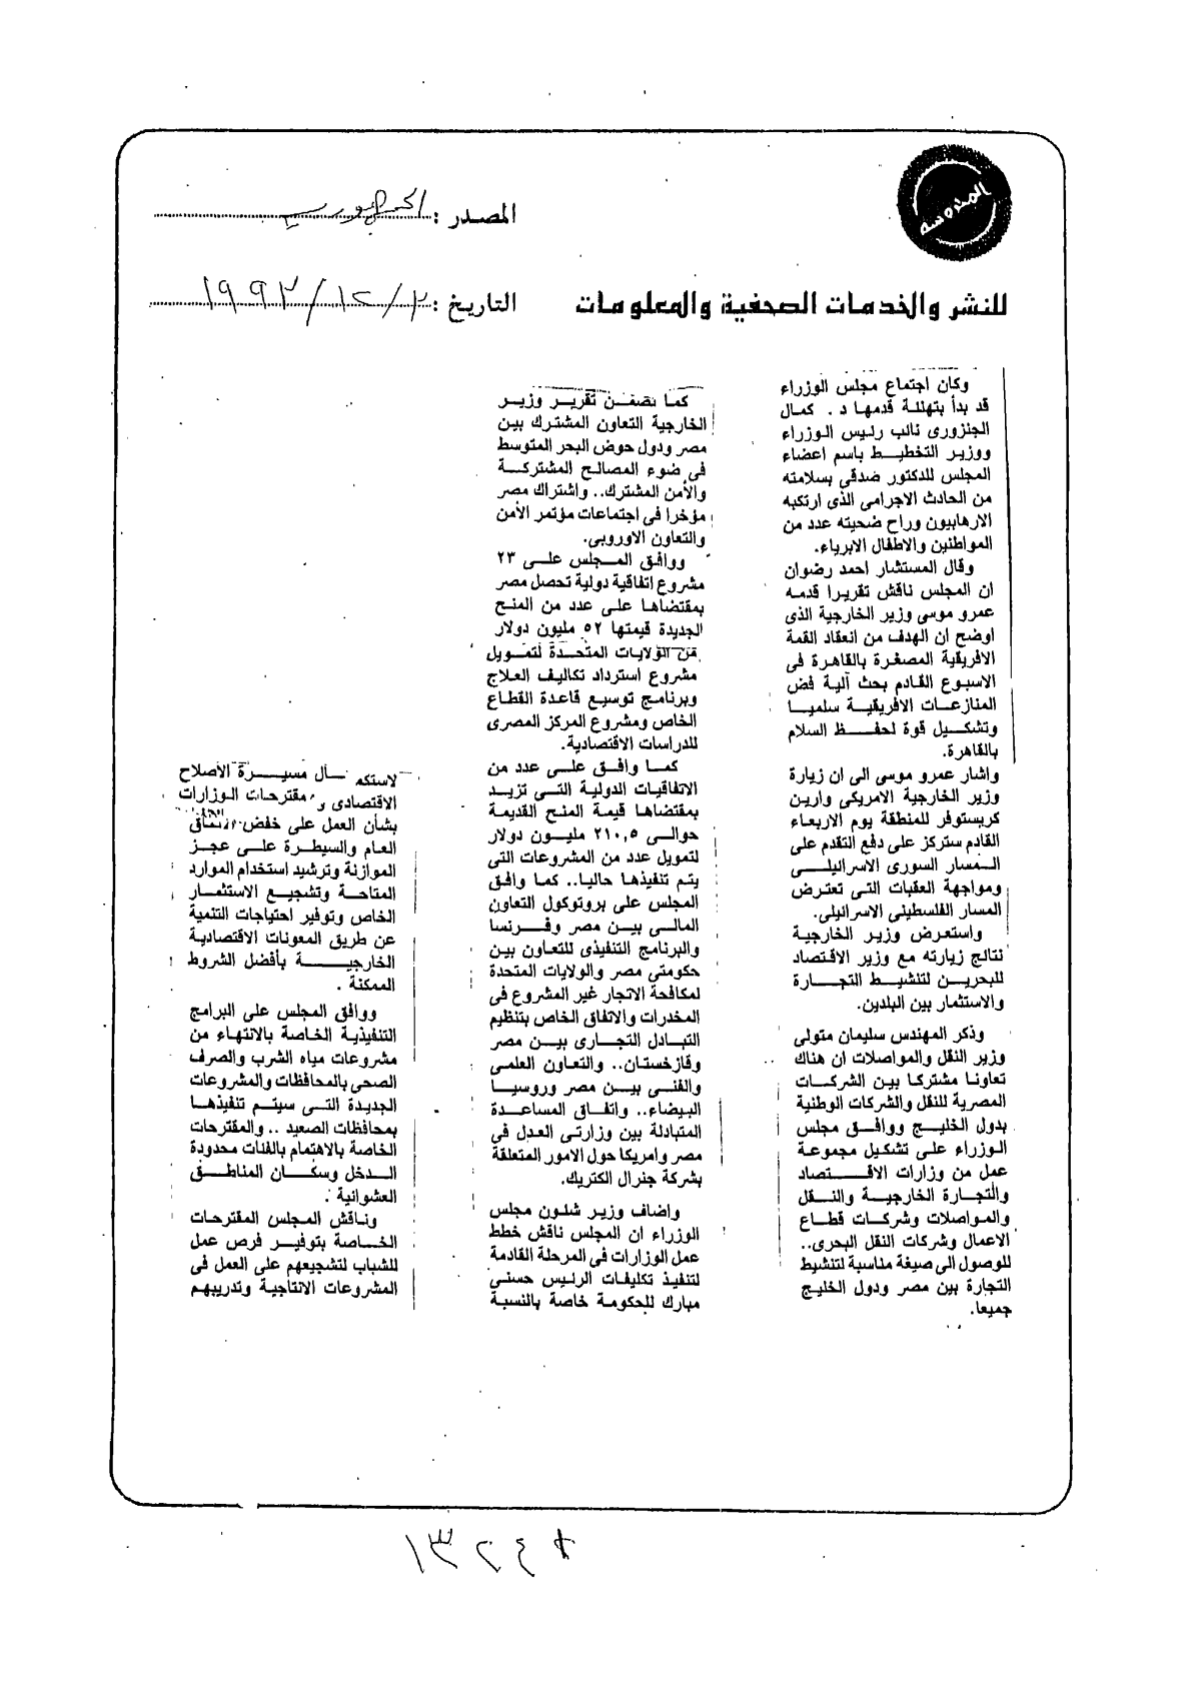 المصدر : الجمهورية
المدروسة
للنشر والخدمات الصحفية والمعلومات
التاريخ : ٢/١٢/١٩٩٣
وكان اجتماع مجلس الوزراء
قد بدأ بتهنئة قدمها د . كمال
الجنزورى نائب رئيس الوزراء
ووزير التخطيط باسم اعضاء
المجلس للدكتور صدقى بسلامته
من الحادث الاجرامى الذى ارتكبه
الارهابيون وراح ضحيته عدد من
المواطنين والاطفال الابرياء.
وقال المستشار احمد رضوان
ان المجلس ناقش تقريرا قدمه
عمرو موسى وزير الخارجية الذى
اوضح ان الهدف من انعقاد القمة
الافريقية المصغرة بالقاهرة فى
الاسبوع القادم بحث آلية فض
المنازعات الافريقية سلميا
وتشكيل قوة لحفظ السلام
بالقاهرة.
واشار عمرو موسى الى ان زيارة
وزير الخارجية الامريكى وارين
كريستوفر للمنطقة يوم الاربعاء
القادم ستركز على دفع التقدم على
المسار السورى الاسرائيلى
ومواجهة العقبات التى تعترض
المسار الفلسطينى الاسرائيلى.
واستعرض وزير الخارجية
نتائج زيارته مع وزير الاقتصاد
للبحرين لتنشيط التجارة
والاستثمار بين البلدين.
وذكر المهندس سليمان متولى
وزير النقل والمواصلات ان هناك
تعاونا مشتركا بين الشركات
المصرية للنقل والشركات الوطنية
بدول الخليج ووافق مجلس
الوزراء على تشكيل مجموعة
عمل من وزارات الاقتصاد
والتجارة الخارجية والنقل
والمواصلات وشركات قطاع
الاعمال وشركات النقل البحرى..
للوصول الى صيغة مناسبة لتنشيط
التجارة بين مصر ودول الخليج
جميعا.
كما تضمن تقرير وزير
الخارجية التعاون المشترك بين
مصر ودول حوض البحر المتوسط
فى ضوء المصالح المشتركة
والأمن المشترك.. واشتراك مصر
مؤخرا فى اجتماعات مؤتمر الأمن
والتعاون الاوروبى.
ووافق المجلس على ٢٣
مشروع اتفاقية دولية تحصل مصر
بمقتضاها على عدد من المنح
الجديدة قيمتها ٥٢ مليون دولار
من الولايات المتحدة لتمويل
مشروع استرداد تكاليف العلاج
وبرنامج توسيع قاعدة القطاع
الخاص ومشروع المركز المصرى
للدراسات الاقتصادية.
كما وافق على عدد من
الاتفاقيات الدولية التى تزيد
بمقتضاها قيمة المنح القديمة
حوالى ٢١٠,٥ مليون دولار
لتمويل عدد من المشروعات التى
يتم تنفيذها حاليا.. كما وافق
المجلس على بروتوكول التعاون
المالى بين مصر وفرنسا
والبرنامج التنفيذى للتعاون بين
حكومتى مصر والولايات المتحدة
لمكافحة الاتجار غير المشروع فى
المخدرات والاتفاق الخاص بتنظيم
التبادل التجارى بين مصر
وقازخستان.. والتعاون العلمى
والفنى بين مصر وروسيا
البيضاء.. واتفاق المساعدة
المتبادلة بين وزارتى العدل فى
مصر وامريكا حول الامور المتعلقة
بشركة جنرال الكتريك.
واضاف وزير شئون مجلس
الوزراء ان المجلس ناقش خطط
عمل الوزارات فى المرحلة القادمة
لتنفيذ تكليفات الرئيس حسنى
مبارك للحكومة خاصة بالنسبة
لاستكمال مسيرة الاصلاح
الاقتصادى ومقترحات الوزارات
بشأن العمل على خفض الانفاق
العام والسيطرة على عجز
الموازنة وترشيد استخدام الموارد
المتاحة وتشجيع الاستثمار
الخاص وتوفير احتياجات التنمية
عن طريق المعونات الاقتصادية
الخارجية بأفضل الشروط
الممكنة .
ووافق المجلس على البرامج
التنفيذية الخاصة بالانتهاء من
مشروعات مياه الشرب والصرف
الصحى بالمحافظات والمشروعات
الجديدة التى سيتم تنفيذها
بمحافظات الصعيد .. والمقترحات
الخاصة بالاهتمام بالفئات محدودة
الدخل وسكان المناطق
العشوائية .
وناقش المجلس المقترحات
الخاصة بتوفير فرص عمل
للشباب لتشجيعهم على العمل فى
المشروعات الانتاجية وتدريبهم